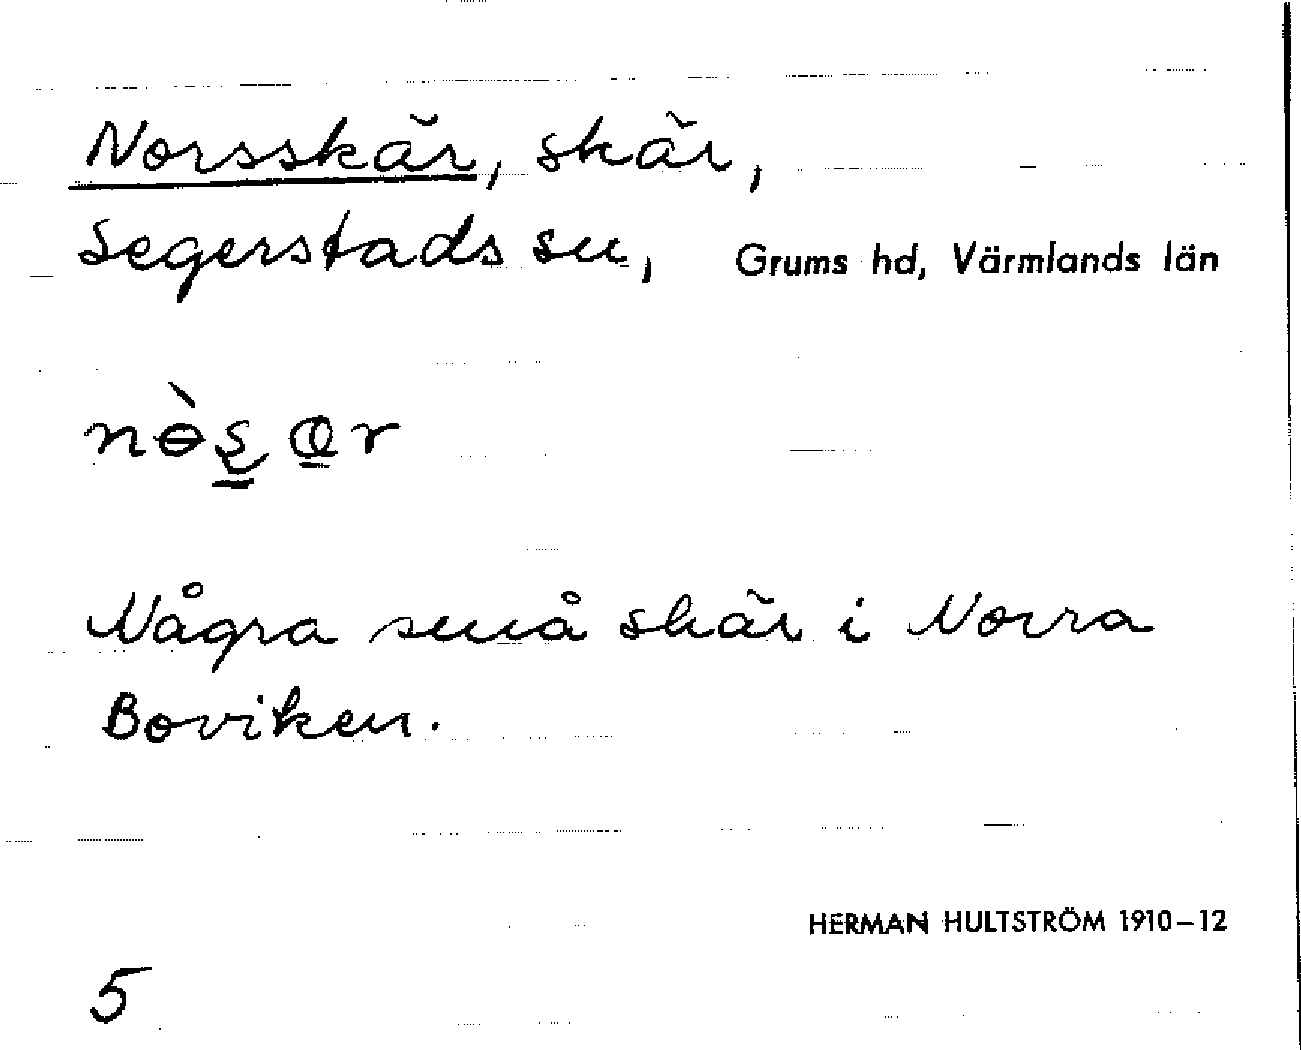 Norsskär, skär,
Segerstads sn, Grums hd, Värmlands län
Några små skär i Norra
Boviken.
HERMAN HULTSTRÖM 1910–12
5